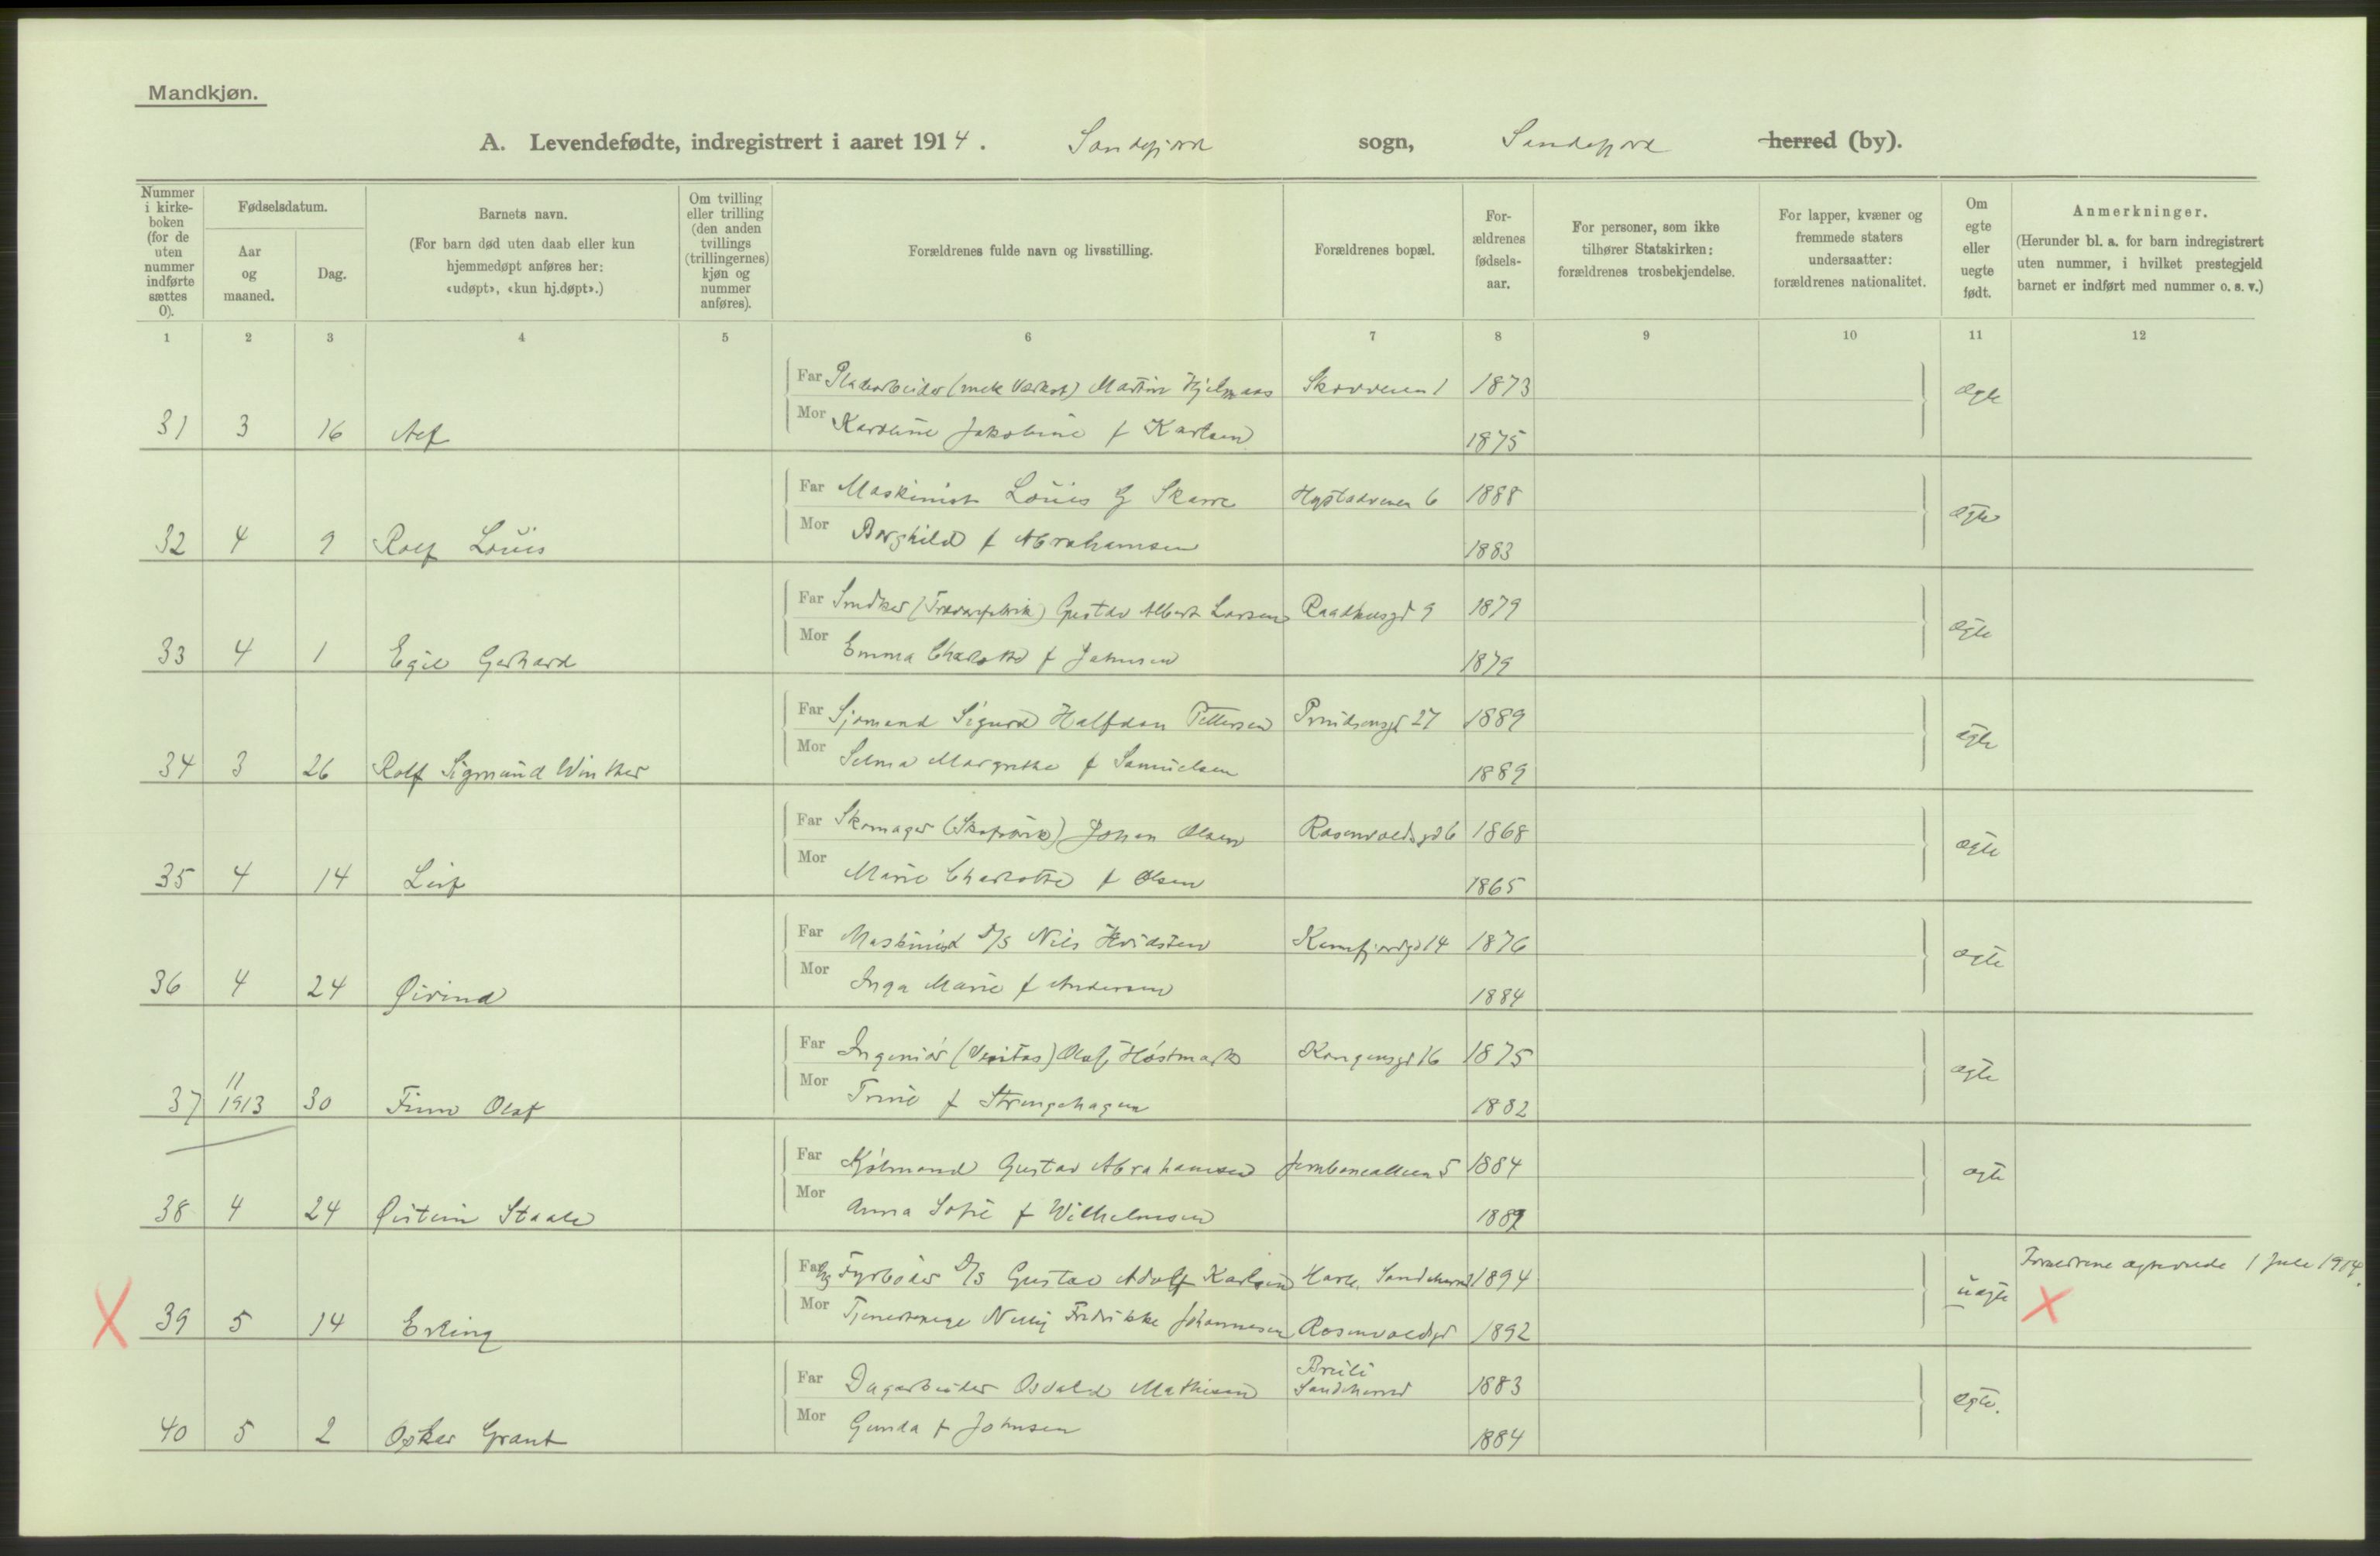 Mandkjøn.
A. Levendefødte, indregistrert i aaret 1914. Sandefjord sogn, Sandefjord herred (by).
Nummer i kirke-boken (for de uten nummer indførte sættes 0).
Fødselsdatum.
Aar og maaned.
Dag.
Barnets navn.
(For barn død uten daab eller kun hjemmedøpt anføres her: «udøpt», «kun hj.døpt».)
Om tvilling eller trilling (den anden tvillings (trillingernes) kjøn og nummer anføres).
Forældrenes fulde navn og livsstilling.
Forældrenes bopæl.
For-ældrenes fødsels-aar.
For personer, som ikke tilhører Statskirken: forældrenes trosbekjendelse.
For lapper, kvæner og fremmede staters undersaatter: forældrenes nationalitet.
Om egte eller uegte født.
Anmerkninger.
(Herunder bl. a. for barn indregistrert uten nummer, i hvilket prestegjeld barnet er indført med nummer o. s. v.)
1 2 3 4 5 6 7 8 9 10 11 12
Far Pladearbeider (mek Værkst) Martin 1873 ægte
31 3 16 Mor Karoline Jakobine f Karlsen 1875
Far Maskinist Louis G Skarre 6 1888 ægte
32 4 9 Rolf Louis Mor Borghild f Abrahamsen 1883
Far Snedker Gustav Albert Larsen Raadhusgd 9 1879 ægte
33 4 1 Egil Gerhard Mor Emma Charlotte f Johnsen 1879
Far Sjømand Sigurd Halfdan Pettersen 27 1889 ægte
34 3 26 Rolf Sigmund Winther Mor Selma Margrethe f Samuelsen 1889
Far Skomager (Skofabrik) Johan Olsen Rosenvoldsgd 6 1868 ægte
35 4 14 Leif Mor Marie Charlotte f Olsen 1865
Far Maskinist D/S Nils Hvidsten 14 1876 ægte
36 4 24 Øivind Mor Inga Marie f Andersen 1884
Far Ingeniør (Veritas) Olaf Høstmark Kongensgd 16 1875 ægte
37 11 1913 30 Finn Olaf Mor Trine f 1882
Far Kjølmand Gustav Abrahamsen Jernbanealleen 5 1884 ægte
38 4 24 Øistein Staale Mor Anna Sofie f Wilhelmsen 1889
Far Fyrbøder D/S Gustav Adolf Karlsen Sandeherred 1894 uægte Forældrene ægteviede 1 Juli 1914.
X 39 5 14 Erling Mor Tjenestepige Fredrikke Johannesen Rosenvoldsgd 1892 X
Far Dagarbeider Osvald Mathisen Breili Sandeherred 1883 ægte.
40 5 2 Oskar Grant Mor Gunda f Johnsen 1884